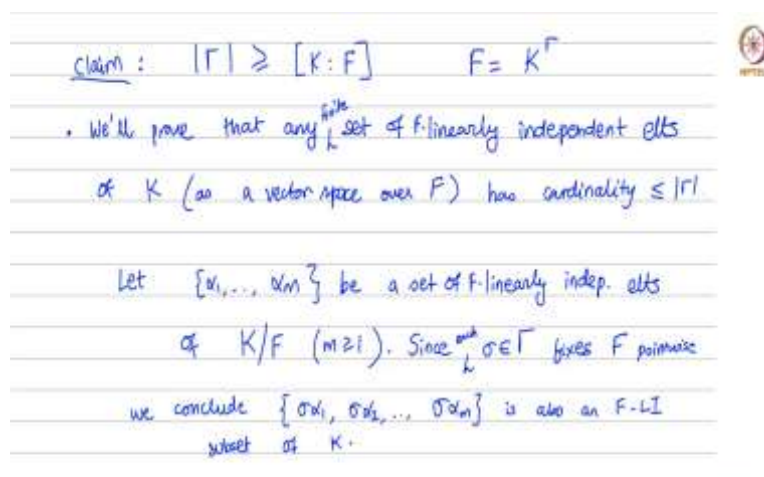 Claim : |Γ| ≥ [K:F] F = K^Γ
• We'll prove that any finite set of F-linearly independent elts
of K (as a vector space over F) has cardinality ≤ |Γ|
Let {α₁,.., αm} be a set of F-linearly indep. elts
of K/F (m≥1). Since each σ∈Γ fixes F pointwise
we conclude {σα₁, σα₂, .., σαm} is also an F-LI
subset of K.
NPTEL